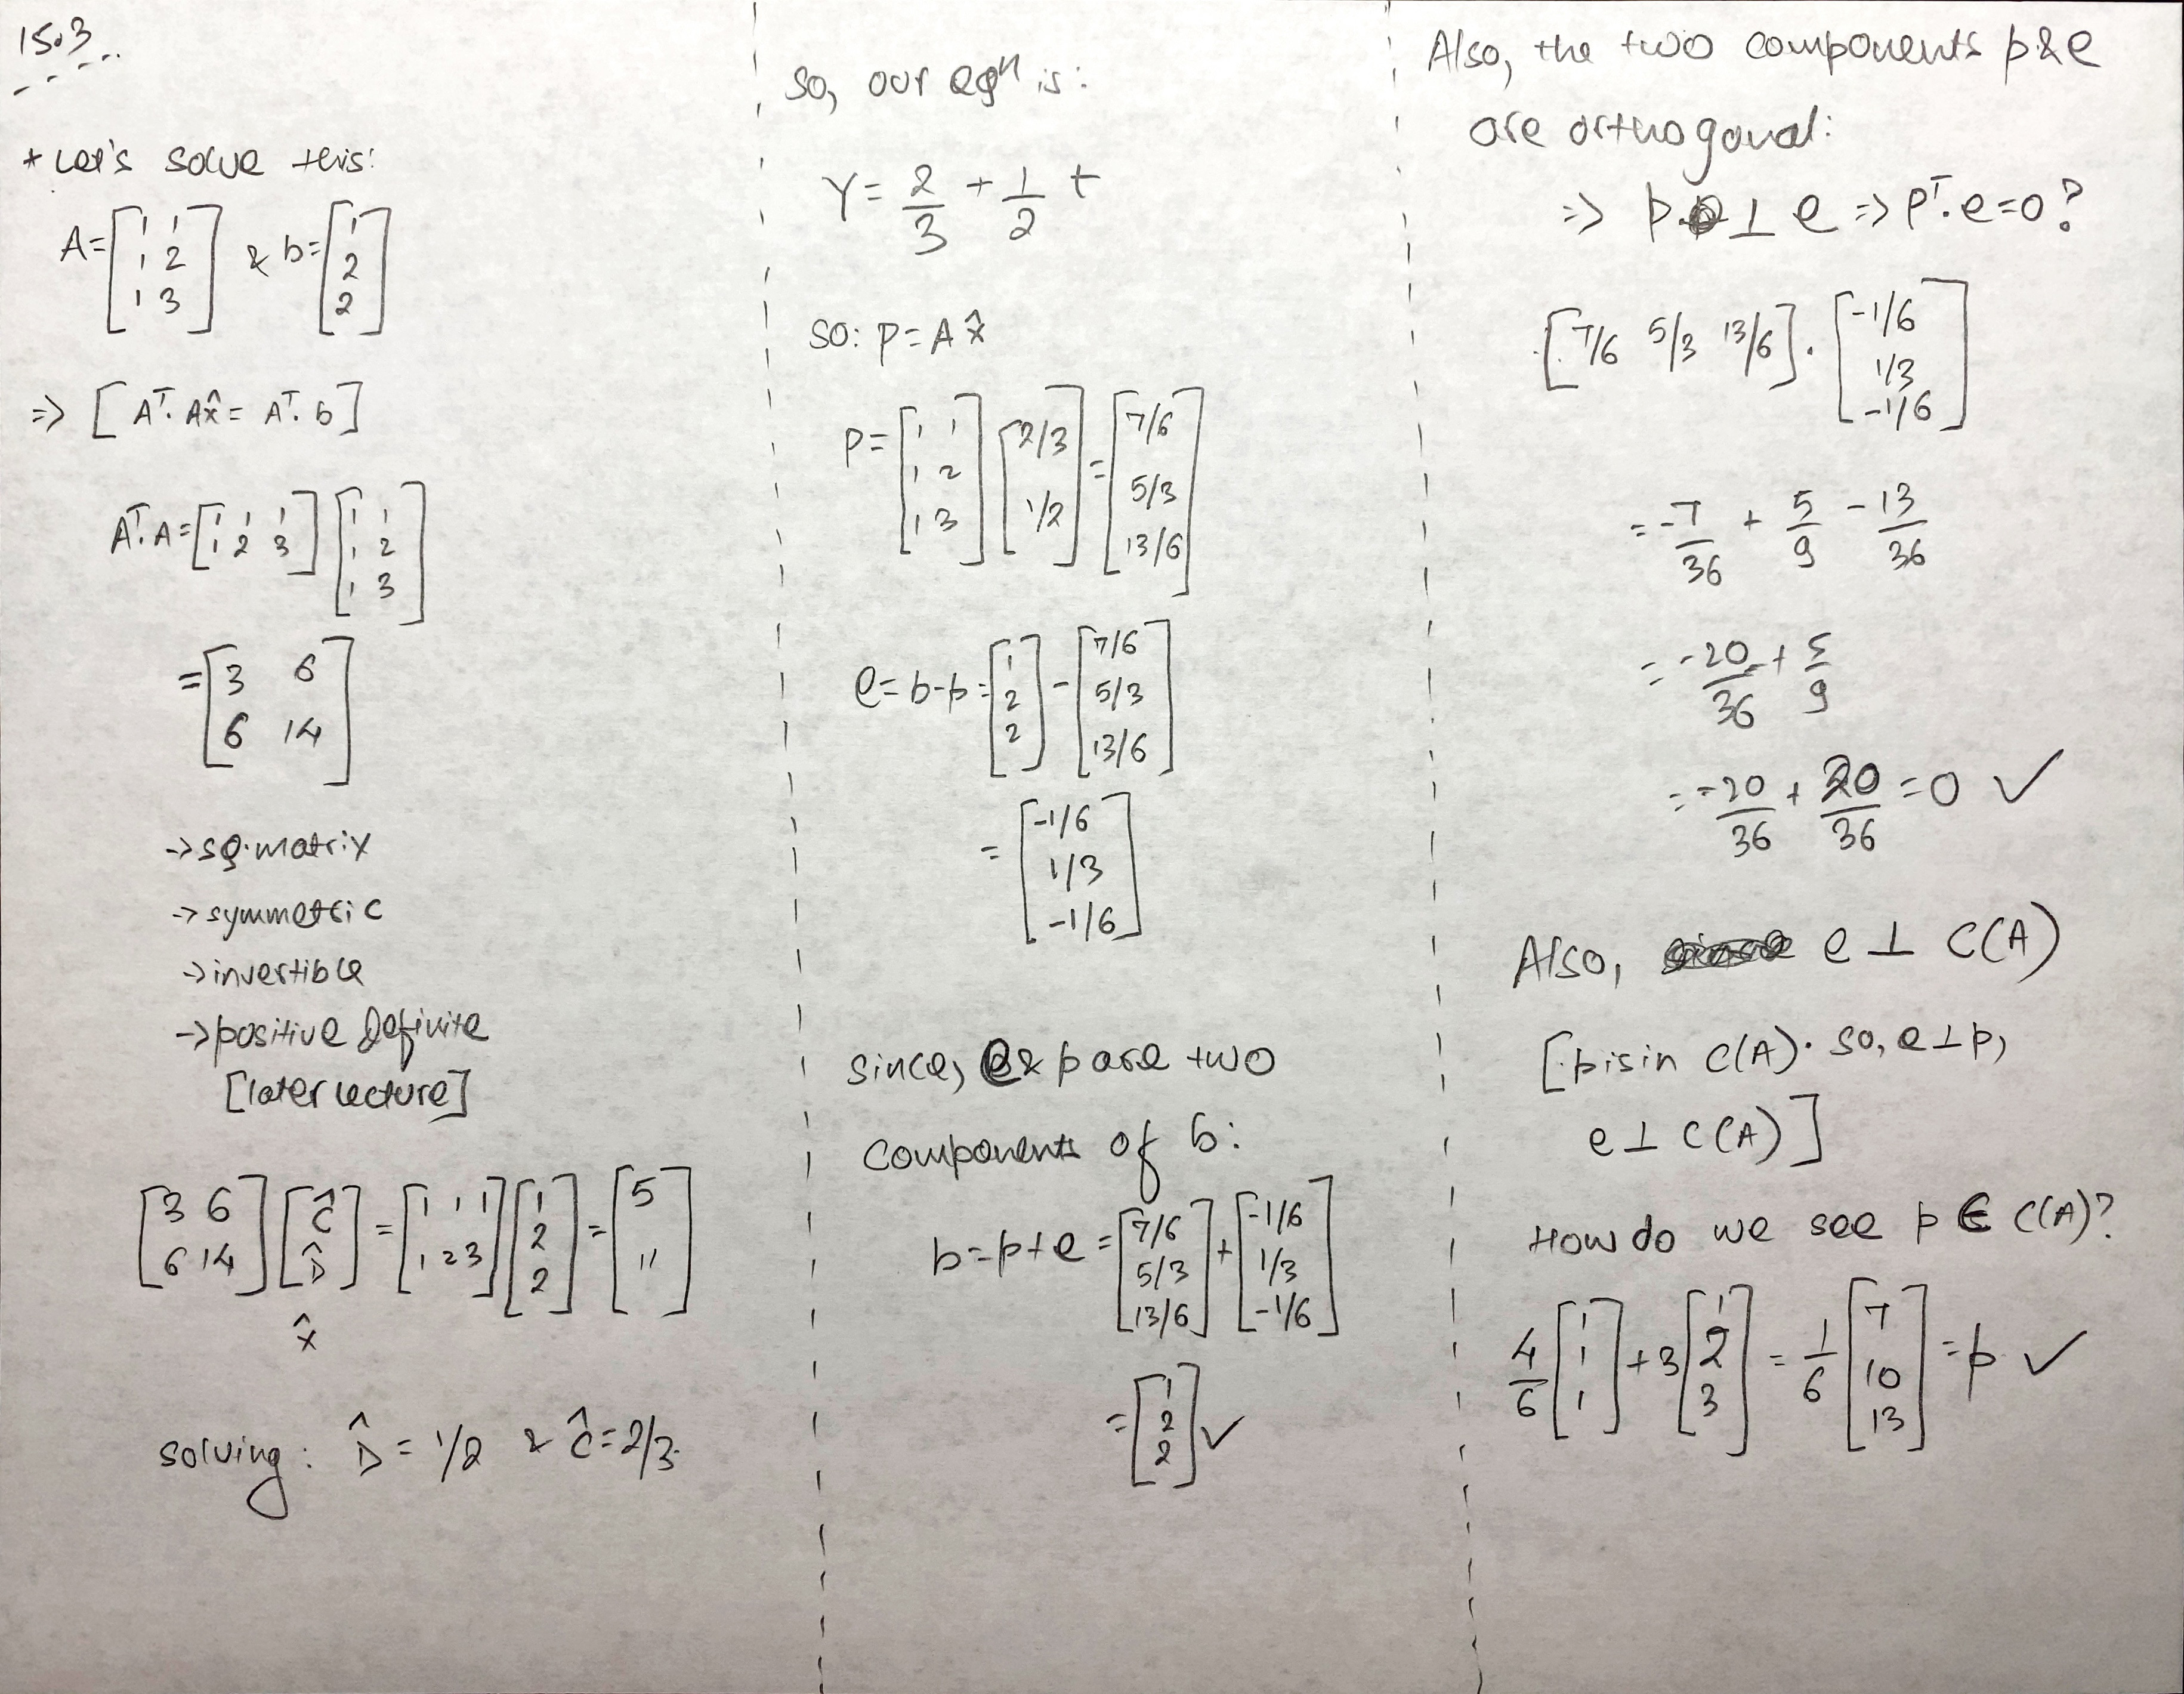 15.3
* Let's solve this:
A = [1 1; 1 2; 1 3] & b = [1; 2; 2]
=> [Aᵀ. Ax̂ = Aᵀ. b]
Aᵀ. A = [1 1 1; 1 2 3] [1 1; 1 2; 1 3]
= [3 6; 6 14]
-> sq. matrix
-> symmetric
-> invertible
-> positive definite
[later lecture]
[3 6; 6 14] [Ĉ; D̂] = [1 1 1; 1 2 3] [1; 2; 2] = [5; 11]
x̂
solving: D̂ = 1/2 & Ĉ = 2/3.
So, our eqⁿ is:
Y = 2/3 + 1/2 t
so: p = A x̂
p = [1 1; 1 2; 1 3] [2/3; 1/2] = [7/6; 5/3; 13/6]
e = b-p = [1; 2; 2] - [7/6; 5/3; 13/6]
= [-1/6; 1/3; -1/6]
since, e & p are two
components of b:
b = p + e = [7/6; 5/3; 13/6] + [-1/6; 1/3; -1/6]
= [1; 2; 2] ✓
Also, the two components p & e
are orthogonal:
=> p ⊥ e => pᵀ. e = 0?
[7/6 5/3 13/6] . [-1/6; 1/3; -1/6]
= -7/36 + 5/9 - 13/36
= -20/36 + 5/9
= -20/36 + 20/36 = 0 ✓
Also, e ⊥ C(A)
[p is in C(A). so, e ⊥ p,
e ⊥ C(A)]
How do we see p ∈ C(A)?
4/6 [1; 1; 1] + 3 [1; 2; 3] = 1/6 [7; 10; 13] = p ✓